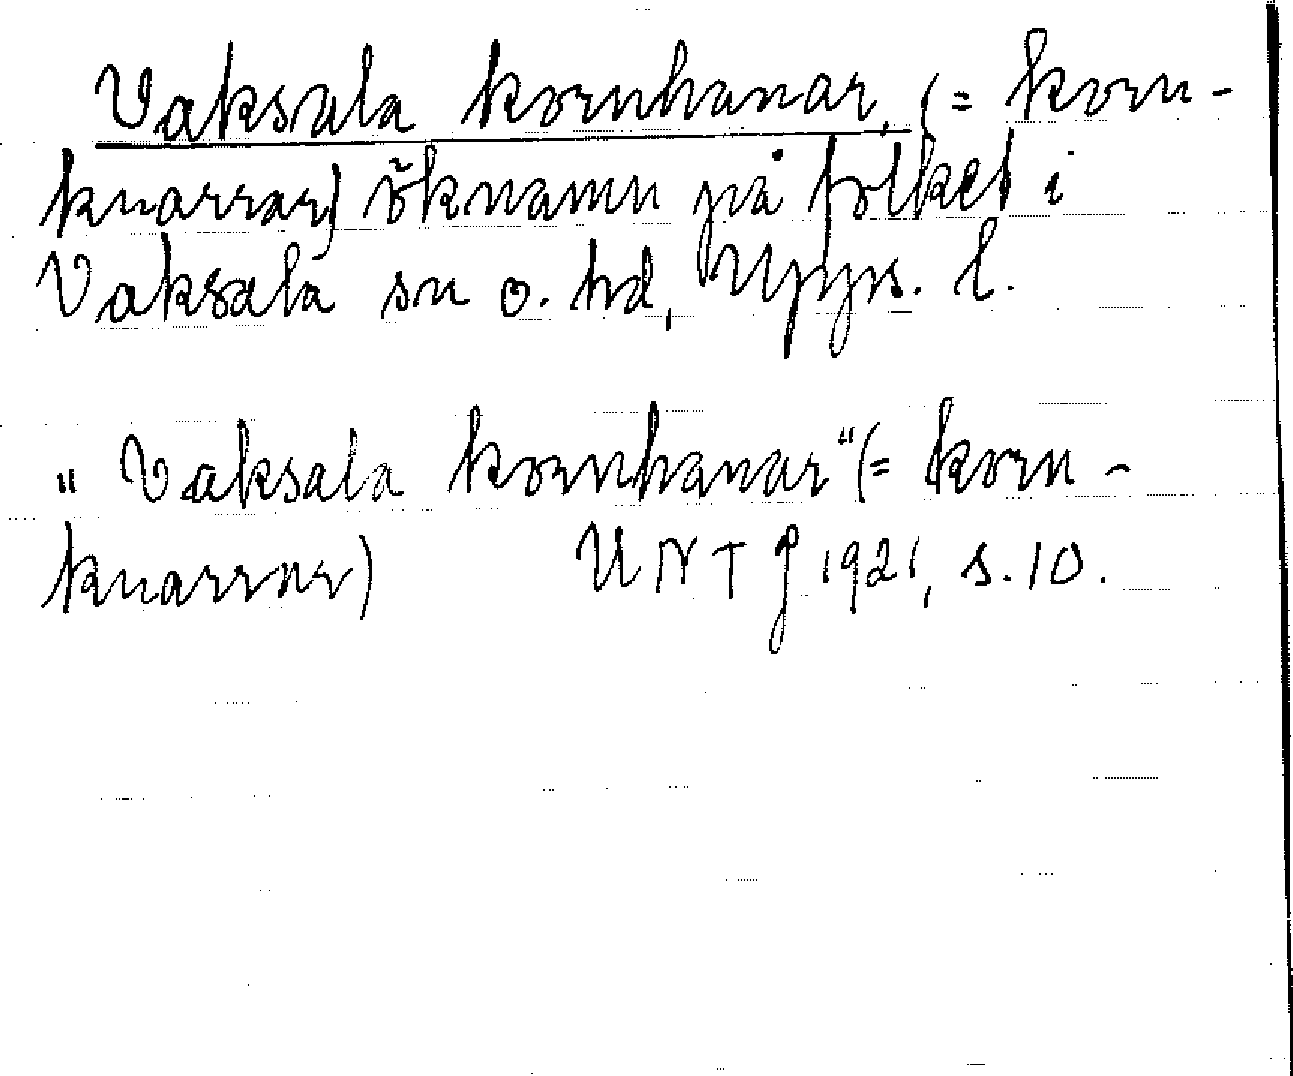 Vaksala kornhanar, (= korn-
knarrar) öknamn på folket i
Vaksala sn o. hd, Upps. l.
"Vaksala kornhanar" (= korn-
knarrar) UNT J 1921, s. 10.